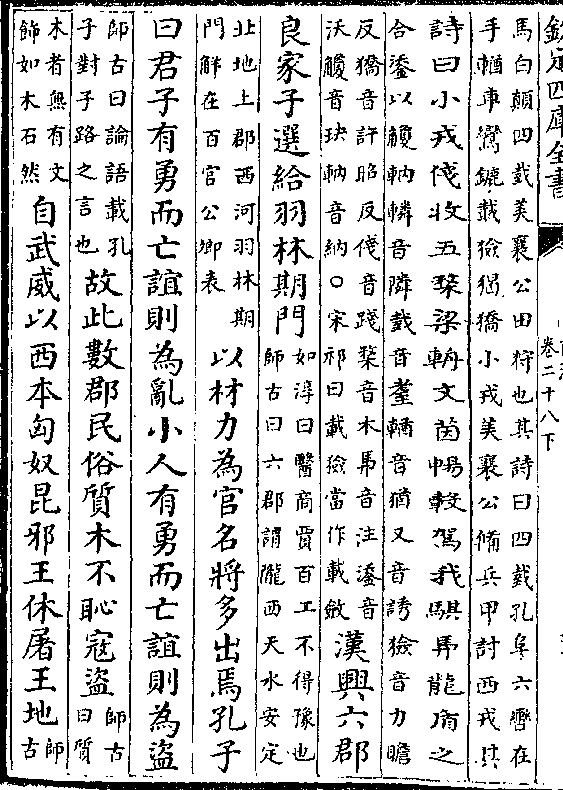 欽定四庫全書
卷二十八下
馬白顛四臷美襄公田狩也其詩曰四臷孔阜六轡在
手輶車鸞鑣載獫猲獢小戎美襄公備兵甲討西戎其
詩曰小戎俴收五楘梁輈文茵暢轂駕我騏馵龍盾之
合鋈以觼軜轔音隣臷音耋輶音猶又音誘獫音力瞻
反獢音許昭反俴音踐楘音木馵音注鋈音
沃觼音玦軜音納○宋祁曰載獫當作載斂
漢興六郡
良家子選給羽林期門
如淳曰醫商賈百工不得豫也
師古曰六郡謂隴西天水安定
北地上郡西河羽林期
門解在百官公卿表
以材力為官名將多出焉孔子
曰君子有勇而亡誼則為亂小人有勇而亡誼則為盗
師古曰論語載孔
子對子路之言也
故此數郡民俗質木不恥寇盗
師古
曰質
木者無有文
飾如木石然
自武威以西本匈奴昆邪王休屠王地
師
古